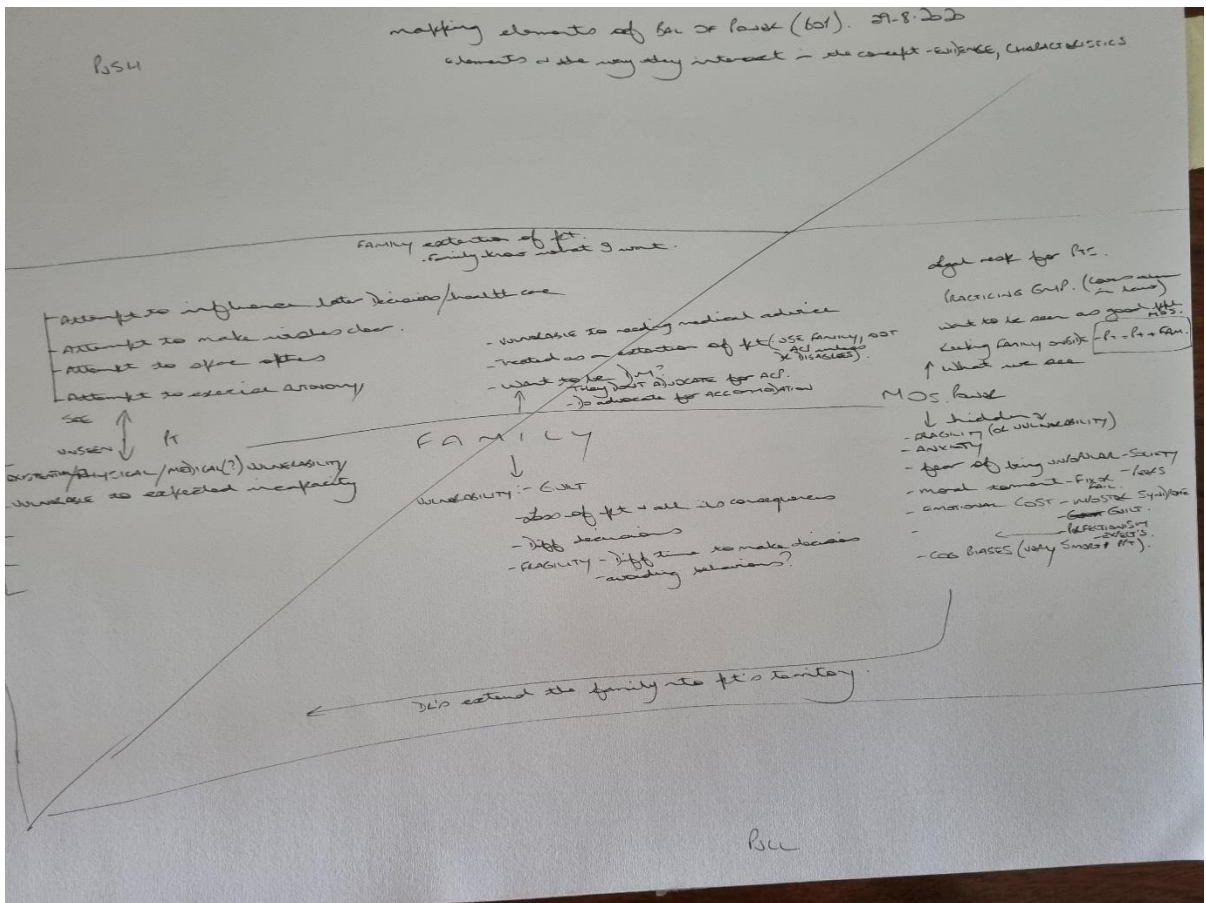 mapping elements of BAL OF Power (601). 29-8-2020
elements & the way they interact - the concept - EVIDENCE, CHARACTERISTICS
FAMILY extention of pt.
- Family know what I want.
- Attempt to influence later Decisions/health care
- Attempt to make wishes clear.
- Attempt to spare others
- Attempt to exercise
SEE
UNSEEN
PT
EXISTENTIAL/PHYSICAL/MEDICAL(?) VULNERABILITY
- VULNERABLE to expected incapacity
- VULNERABLE to needing medical advice
- Treated as an extention of pt (USE FAMILY, NOT
ACP unless
DR DISAGREES).
- Want to be D/M?
- They DON'T ADVOCATE for ACP.
- Do advocate for ACCOMODATION
FAMILY
VULNERABILITY:- GUILT
- Loss of pt & all its consequences
- Diff decisions
- FRAGILITY - Diff time to make decision
- avoiding behaviours?
Legal risk for
PRACTICING GMP. (
want to be seen as good
Keeping FAMILY onside - PT = PT + FAM.
What we see
MOs. Power
hidden
- FRAGILITY (or VULNERABILITY)
- ANXIETY
- fear of being - SOCIETY
- moral torment -
- EMOTIONAL COST - IMPOSTER
- GUILT.
- PERFECTIONISM
-
- COG BIASES (very
DR's extend the family into pt's territory.